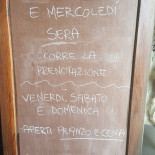 E MERCOLEDÍ
SERA
CORRE LA
PRENOTAZIONE
VENERDI, SABATO
E DOMENICA
APERTI PRANZO E CENA